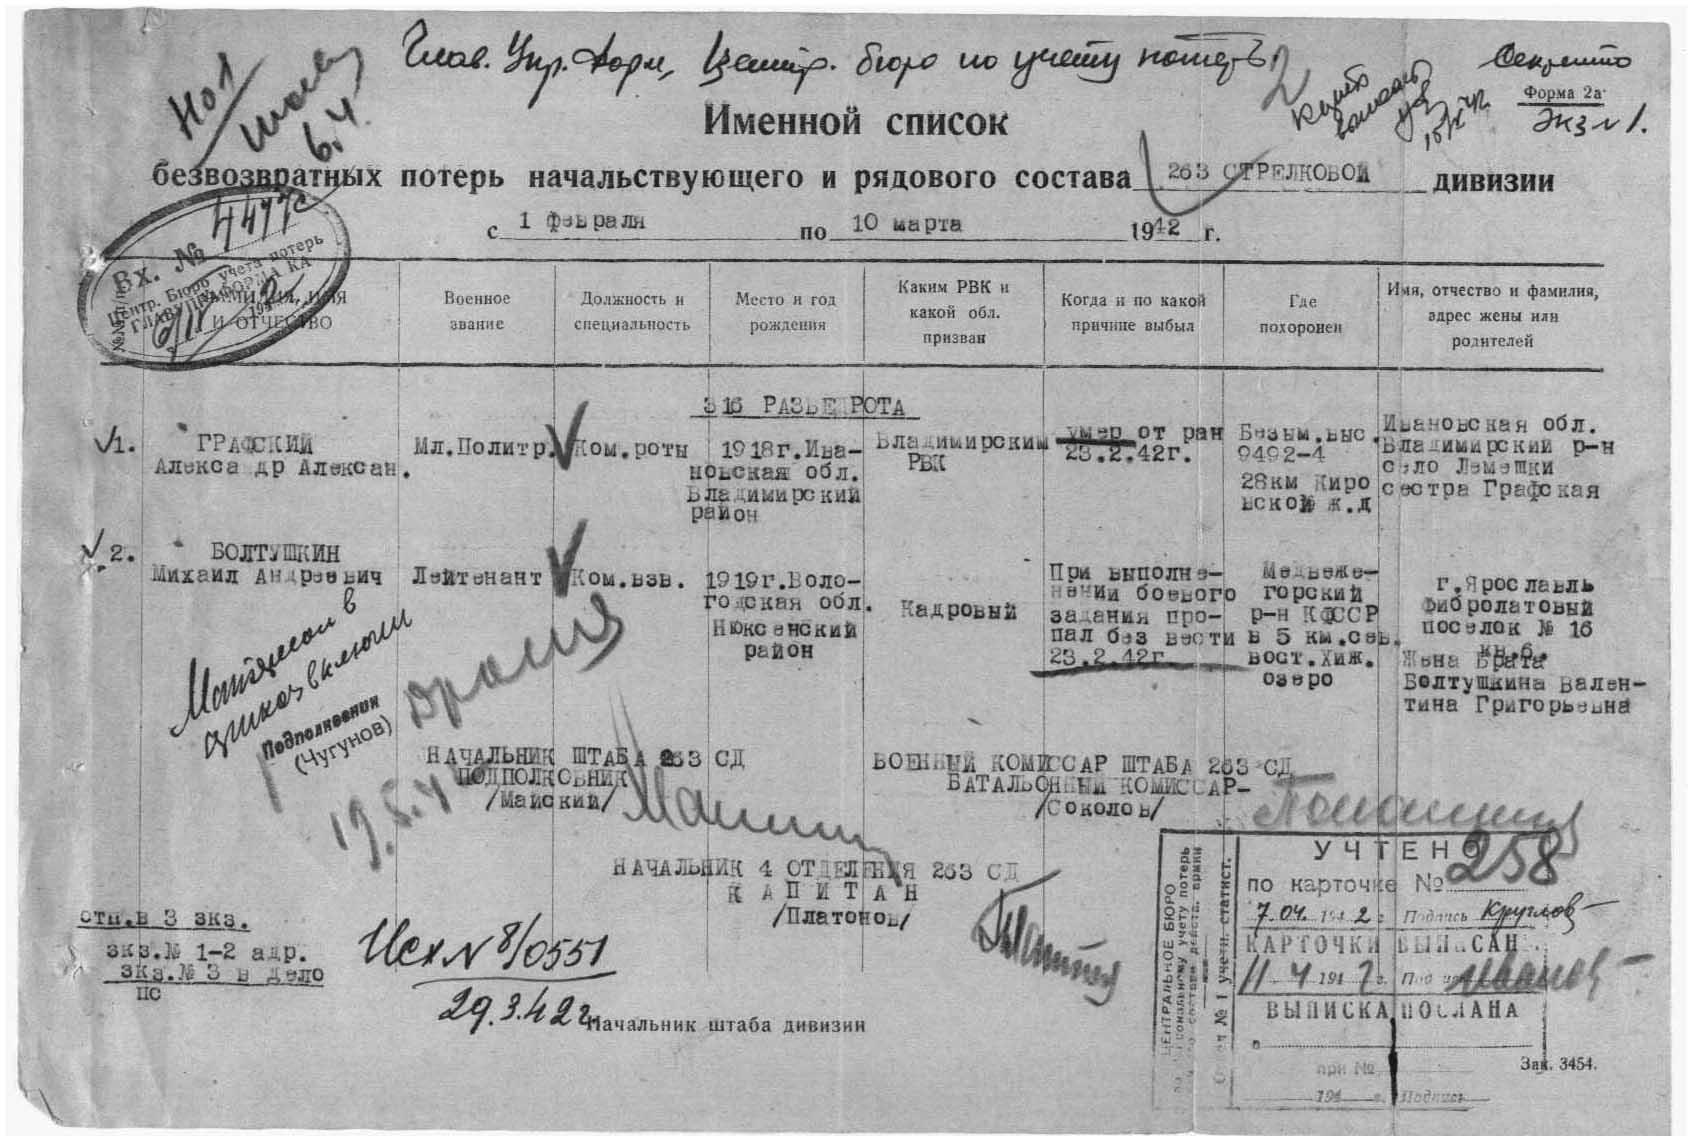 Глав. Упр. Форм, Центр. бюро по учету потерь.
Секретно
Форма 2а
Экз № 1.
6.4.
Именной список
безвозвратных потерь начальствующего и рядового состава 263 СТРЕЛКОВОЙ дивизии
с 1 февраля по 10 марта 1942 г.
Вх. № 4477с
Центр. Бюро учета потерь
ГЛАВУПРАФОРМА КА
ФАМИЛИЯ, ИМЯ
И ОТЧЕСТВО
Военное
звание
Должность и
специальность
Место и год
рождения
Каким РВК и
какой обл.
призван
Когда и по какой
причине выбыл
Где
похоронен
Имя, отчество и фамилия,
адрес жены или
родителей
316 РАЗВЕДРОТА
1.
ГРАФСКИЙ
Алекса др Алексан.
Мл.Политр.
Ком.роты
1918г.Ива-
новская обл.
Владимирский
район
Владимирским
РВК
умер от ран
23.2.42г.
Безым.выс.
9492-4
28км Киро
вской ж.д
Ивановская обл.
Владимирский р-н
село Лемешки
сестра Графская
2.
БОЛТУШКИН
Михаил Андреевич
Лейтенант
Ком.взв.
1919г.Воло-
годская обл.
Нюксенский
район
Кадровый
При выполне-
нении боевого
задания про-
пал без вести
23.2.42г
Медвеже-
горский
р-н КФССР
в 5 км.сев.
вост.Хиж.
озеро
г.Ярославль
Фибролатовый
поселок № 16
кв.6.
Жена Брата
Болтушкина Вален-
тина Григорьевна
Подполковник
(Чугунов)
НАЧАЛЬНИК ШТАБА 263 СД
ПОДПОЛКОВНИК
/Майский/
ВОЕННЫЙ КОМИССАР ШТАБА 263 СД
БАТАЛЬОННЫЙ КОМИССАР-
/Соколов/
НАЧАЛЬНИК 4 ОТДЕЛЕНИЯ 263 СД
К А П И Т А Н
/Платонов/
отп.в 3 экз.
экз.№ 1-2 адр.
экз.№ 3 в дело
пс
Исх № 8/0551
29.3.42г.
Начальник штаба дивизии
ЦЕНТРАЛЬНОЕ БЮРО
УЧТЕНО
по карточке № 258
7.04. 1942 г. Подпись Круглов
КАРТОЧКИ ВЫПИСАН
11.4 1942 г. Иванов
ВЫПИСКА ПОСЛАНА
в
при №
194 г. Подпись
Зак. 3454.